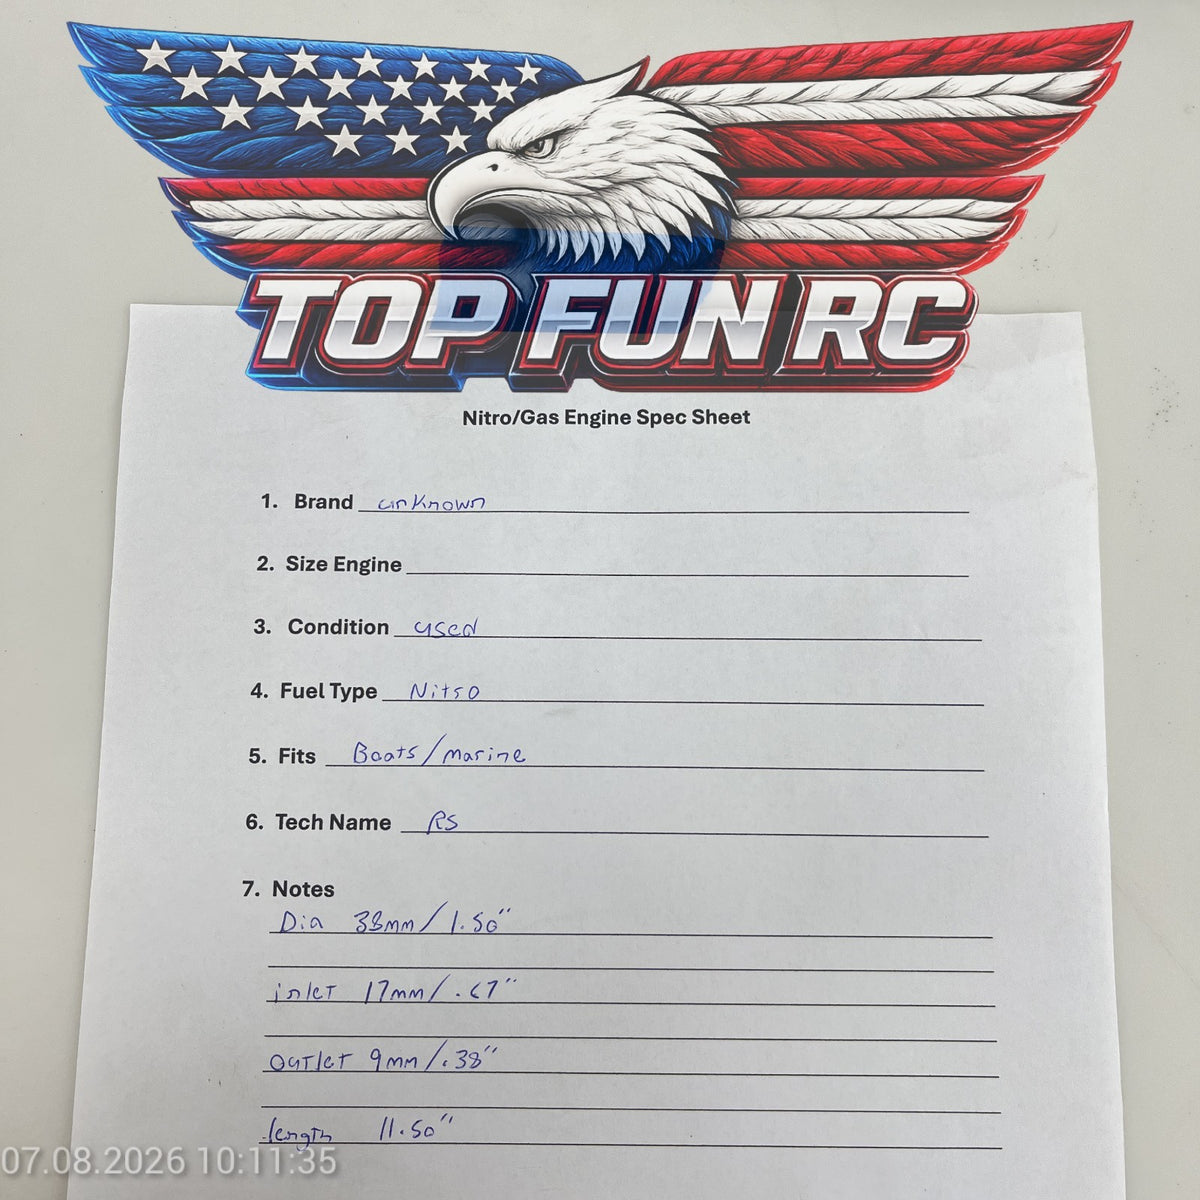 TOP FUN RC
Nitro/Gas Engine Spec Sheet
1. Brand unknown
2. Size Engine
3. Condition used
4. Fuel Type Nitro
5. Fits Boats/marine
6. Tech Name RS
7. Notes
Dia 38mm/1.50"
inlet 17mm/.67"
outlet 9mm/.38"
length 11.50"
07.08.2026 10:11:35